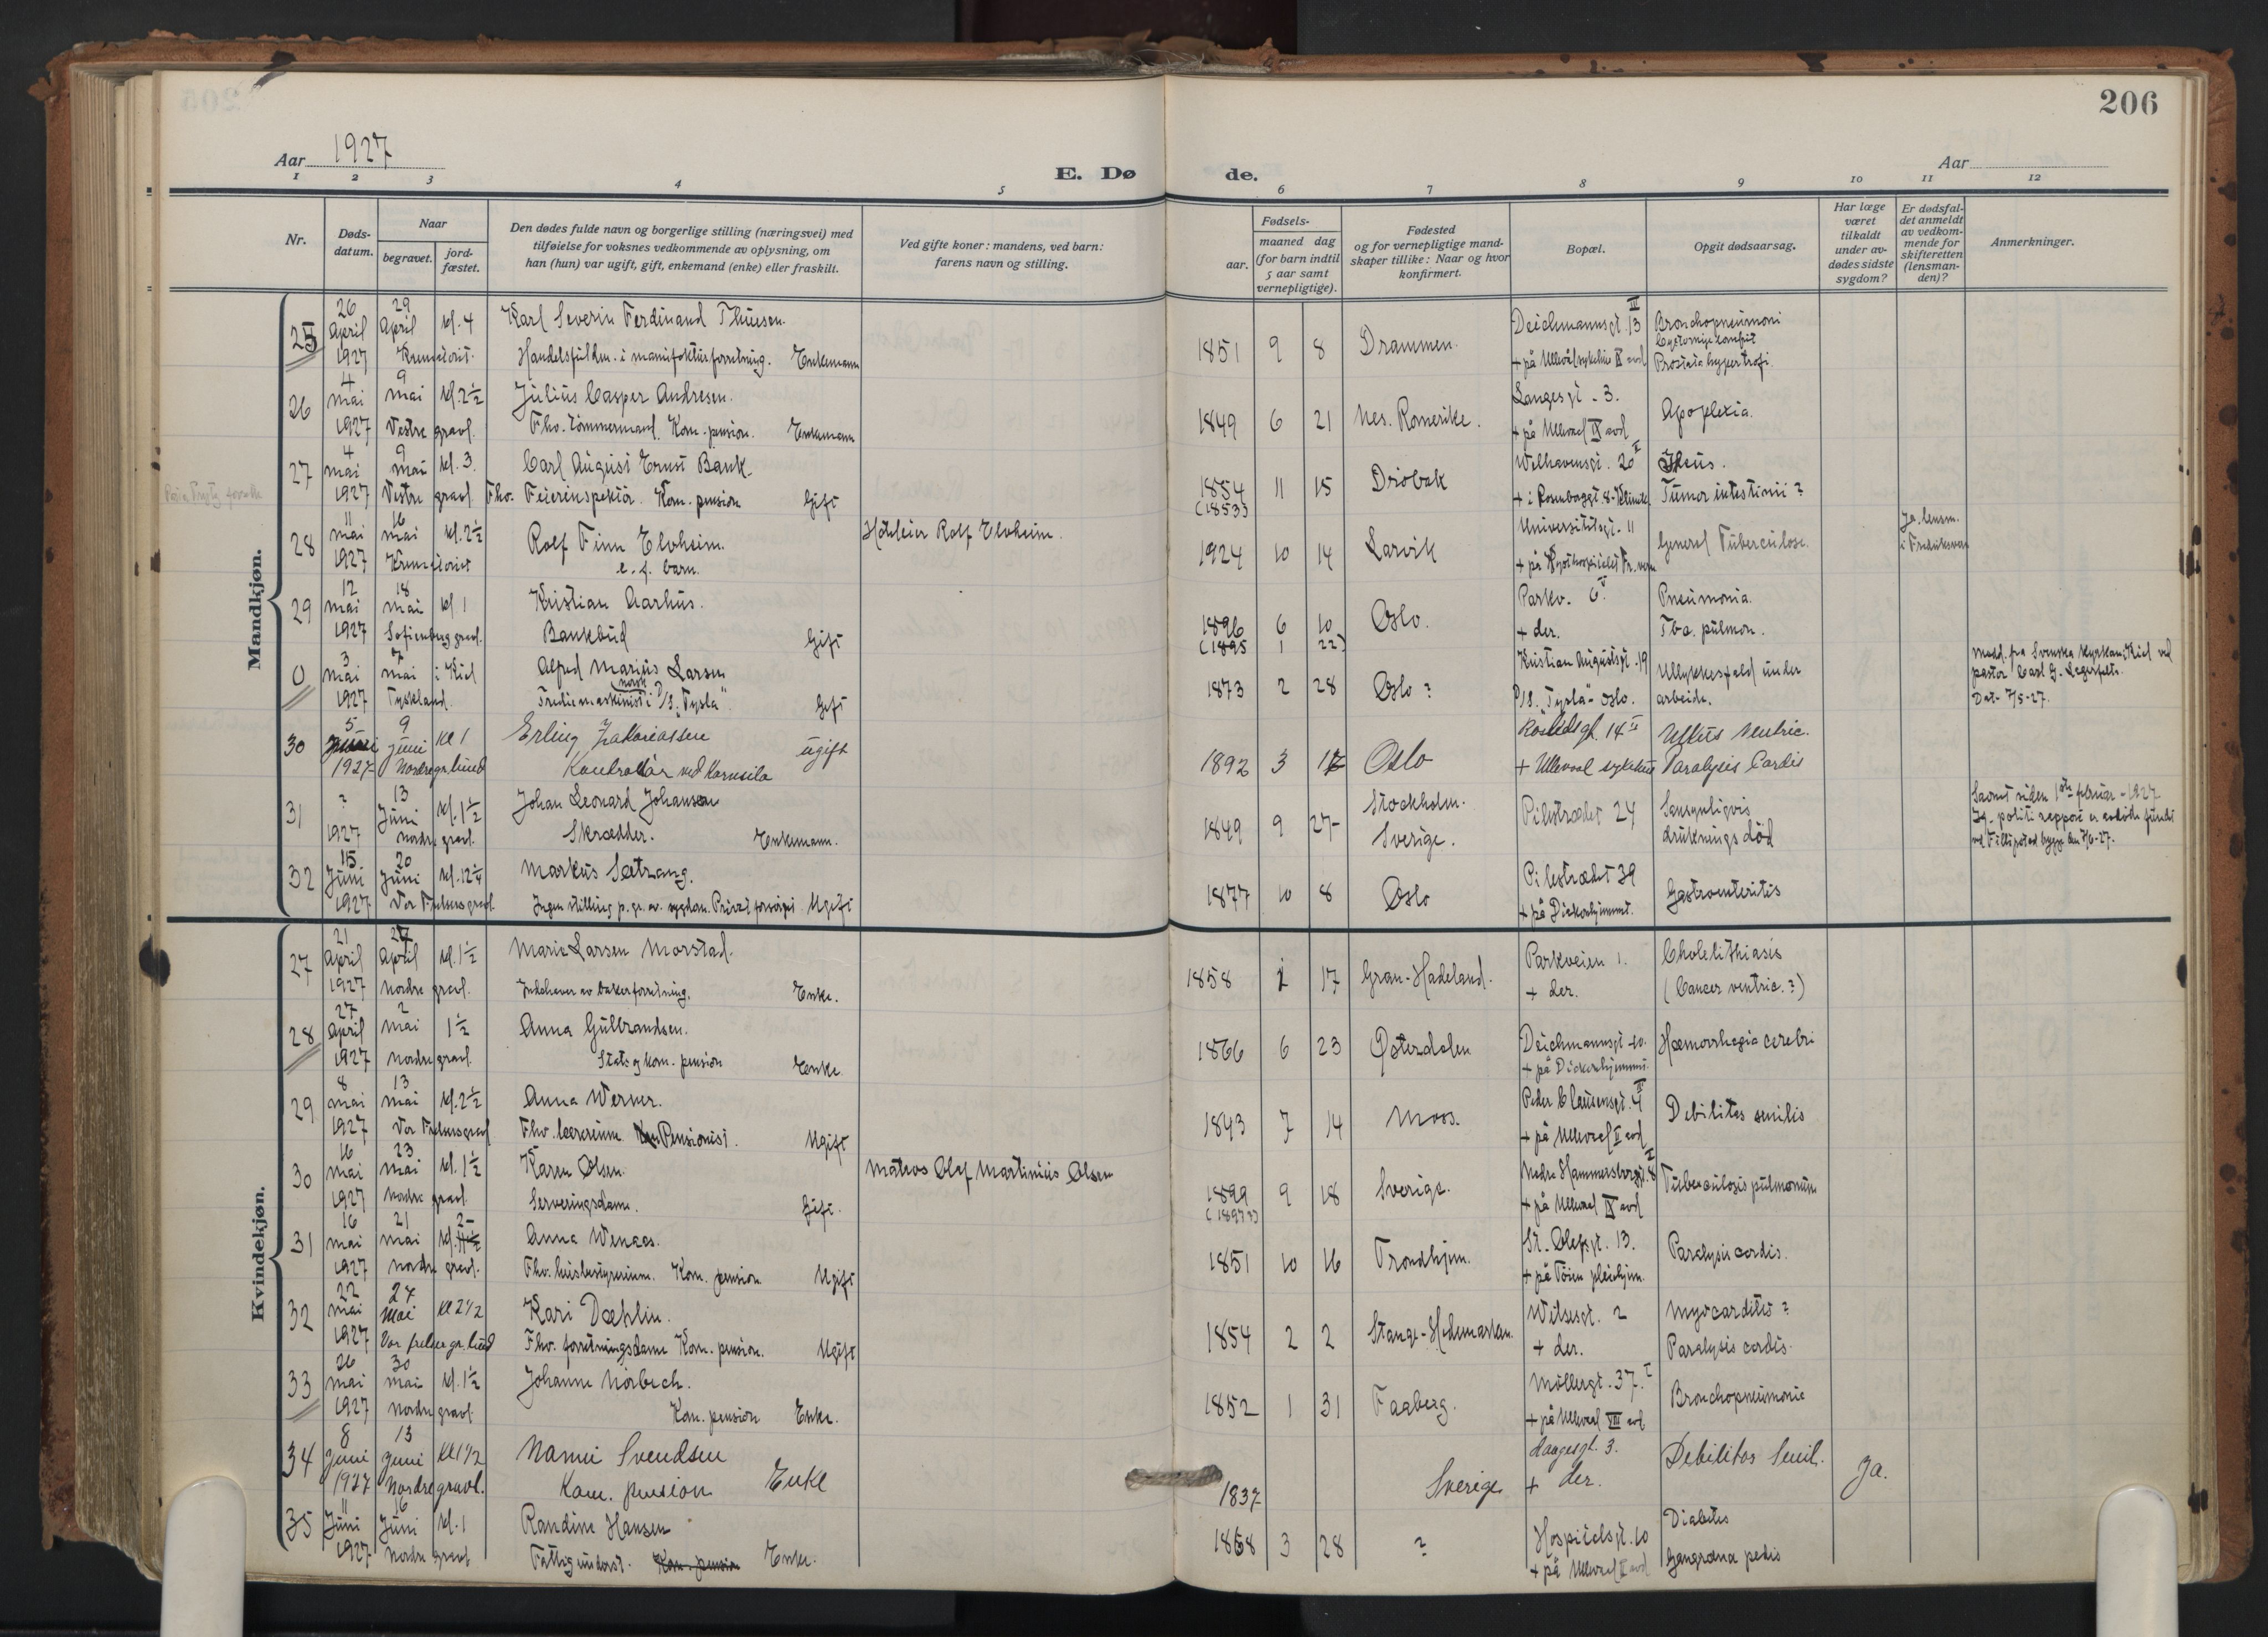 206
Aar 1927
E. Dø de.
Aar
1 2 3 4 5 6 7 8 9 10 11 12
Nr.
Døds-datum.
Naar
begravet.
jord-fæstet.
Den dødes fulde navn og borgerlige stilling (næringsvei) med
tilføielse for voksnes vedkommende av oplysning, om
han (hun) var ugift, gift, enkemand (enke) eller fraskilt.
Ved gifte koner: mandens, ved barn:
farens navn og stilling.
Fødsels-
aar.
maaned dag
(for barn indtil
5 aar samt
vernepligtige).
Fødested
og for vernepligtige mand-
skaper tillike: Naar og hvor
konfirmert.
Bopæl.
Opgit dødsaarsag.
Har læge
været
tilkaldt
under av-
dødes sidste
sygdom?
Er dødsfal-
det anmeldt
av vedkom-
mende for
skifteretten
(lensman-
den)?
Anmerkninger.
Mandkjøn.
25 26 April 1927 29 April kl. 4 Krematoriet.
Karl Severin Ferdinand Thuesen.
Handelsfuldm. i manufakturforretning. Enkemann
1851 9 8 Drammen.
Deichmannsgt. 13 IV
+ på Ullevål sykehus avd
Bronchopneumoni
Prostatahypertrofi.
26 4 mai 1927 9 mai kl. 2½ Vestre gravl.
Julius Casper Andresen.
Fhv. tømmermand. Kom. pension. Enkemann
1849 6 21 Nes. Romerike.
Langesgt. 3.
+ på Ullevaal IX avd
Apoplexia.
27 4 mai 1927 9 mai kl. 3. Vestre gravl.
Carl August Ernst Bank.
Fhv. Feierinspektør. Kom. pension Gift
1854 (1853) 11 15 Drøbak
Welhavensgt. 20 I
+ i Rosenborggt 8. Klinik
Ileus.
Tumor intestinii?
28 11 mai 1927 16 mai kl. 2½ Krematoriet
Rolf Finn Elvheim.
e. f. barn.
Hoteleier Rolf Elvheim.
1924 10 14 Larvik
Universitetsgt. 11
+ på Kysthospitalet Fr. vern
General Tuberculose.
Ja. lensm.
i Fredriksvern
29 12 mai 1927 18 mai kl. 1 Sofienberg gravl.
Kristian Aarhus.
Bankbud Gift
1896 6 10 Oslo.
(1895 1 22)
Parkv. 6 V.
+ der.
Pneumonia.
Tbc. pulmon.
0 3 mai 1927 7 mai i Kiel Tyskland.
Alfred Marius Larsen
Tredie maskinist i norsk D/S. "Tysla". Gift
1873 2 28 Oslo?
Kristian Augustsgt. 19
D/S. "Tysla" Oslo.
Ulykkesfald under
arbeide.
Medd. fra Svenska kyrkan i Kiel ved
pastor Carl G. Lagerfelt.
Dat. 7/5-27.
30 5 juni 1927 9 juni kl 1 Nordre gr.lund
Erling Zakariassen
Kontrollør ved Kornsilo ugift
1892 3 17 Oslo
14 II
+ Ullevaal sykehus
Ulkus Ventric.
Paralysis Cordis
31 ? 1927 13 Juni kl. 1½ Nordre gravl.
Johan Leonard Johansen
Skrædder. Enkemann.
1849 9 27 Stockholm.
Sverige.
Pilestrædet 24
Sansynligvis
drukningsdød
Savnet siden 1ste februar 1927
Ifg. politi rapport er avdøde fundet
ved Filipstad brygge den 7/6-27.
32 15 Juni 1927 20 Juni kl. 12¼ Vor Frelsers gravl
Markus Sætrang.
Ingen stilling p. gr. av sygdom. Privat forsørget Ugift
1877 10 8 Oslo
Pilestrædet 39
+ på Diakonhjemmet.
Gastroenteritis
Kvindekjøn.
27 21 April 1927 27 April kl. 1½ Nordre gravl.
Marie Larsen Morstad.
Indehaver av bakerforretning. Enke.
1858 17 Gran-Hadeland.
Parkveien 1.
+ der.
Cholelithiasis
(Cancer ventric.?)
28 27 April 1927 2 mai 1½ Nordre gravl
Anna Gulbrandsen.
Stats og kom. pension Enke.
1866 6 23 Østerdalen
Deichmannsgt. 10.
+ på Diakonhjemmet.
Hæmorrhagia cerebri
29 8 mai 1927 13 mai kl. 2½ Vor Frelsers gravl
Anna Werner.
Fhv. lærerinne Pensionist. Ugift
1843 7 14 Moss.
Peder Claussensgt. 4 II
+ på Ullevaal II avd
Debilitas senilis
30 16 mai 1927 23 mai kl. 1½ Nordre gravl.
Karen Olsen.
Serveringsdame. Gift.
Matros Olaf Martinius Olsen
1899 (1897?) 9 18 Sverige.
Nedre Hammersborggt. 8
+ på Ullevaal IX avd
Tuberculosis pulmonum
31 16 mai 1927 21 mai kl. 2- Nordre gravl.
Anna Wenaas.
Fhv. husbestyrerinne. Kom. pension Ugift
1851 10 16 Trondhjem.
St. Olafsgt. 13.
+ på Tøien pleiehjem.
Paralysis cordis.
32 22 mai 1927 27 mai kl 2½ Vor frelser gr. lund
Kari Dæhlin.
Fhv. forretningsdame Kom. pension. Ugift
1854 2 2 Stange-Hedemarken.
Wessesgt. 2
+ der.
Myocarditis?
Paralysis cordis.
33 26 mai 1927 30 mai kl. 1½ Nordre gravl.
Johanne Norbech.
Kom. pension Enke.
1852 1 31 Faaberg.
Møllergt. 37. I
+ på Ullevaal VIII avd
Bronchopneumonie
34 8 juni 1927 13 juni kl 1½ Nordre gravl.
Nanni Svendsen
Kom. pension Enke
1837 Sverige
Langesgt. 3.
+ der.
Debilitas Senil.
Ja.
35 11 Juni 1927 16 Juni kl. 1 Nordre gravl
Randine Hansen
Fattigunderst. Kom. pension Enke.
1868 3 28 ?
Hospitalsgt. 10
+ på Ullevaal avd
Diabetes
Gangræna pedis